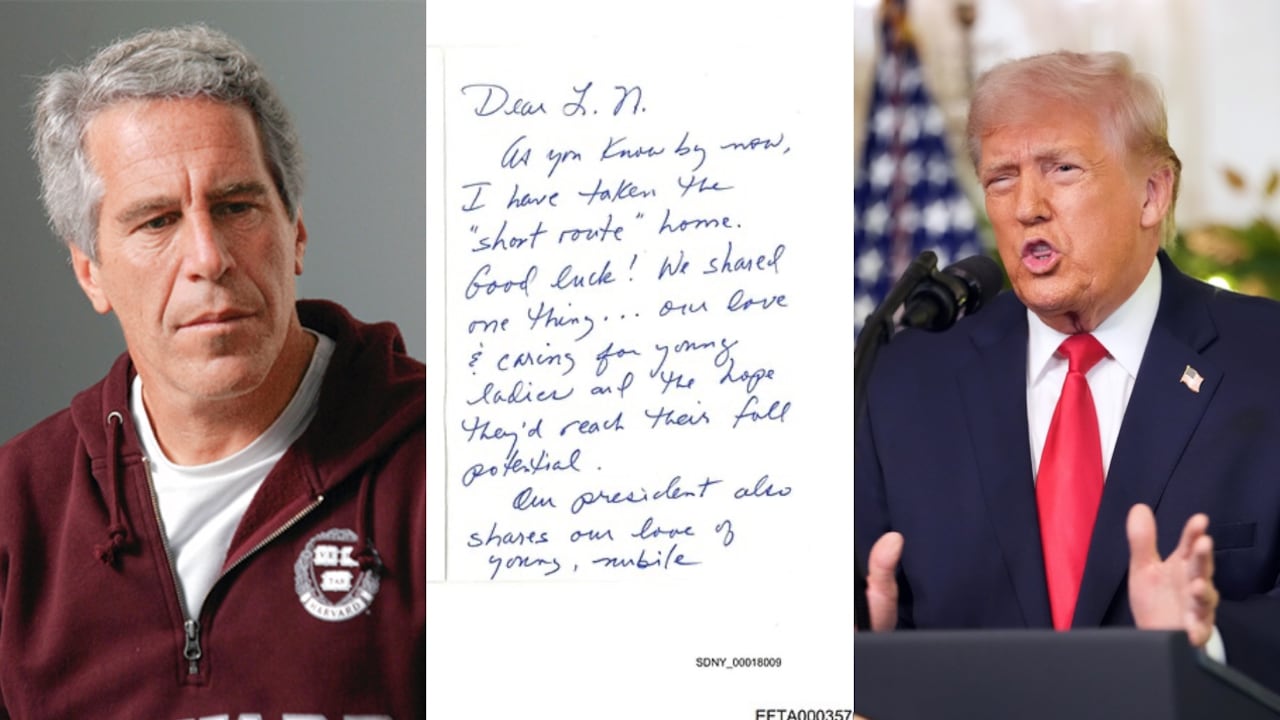 Dear L. N.
As you know by now,
I have taken the
"short route" home.
Good luck! We shared
one thing... our love
& caring for young
ladies and the hope
they'd reach their full
potential.
Our president also
shares our love of
young, nubile
SDNY_00018009
EFTA000357
VE RI
TAS
HARVARD